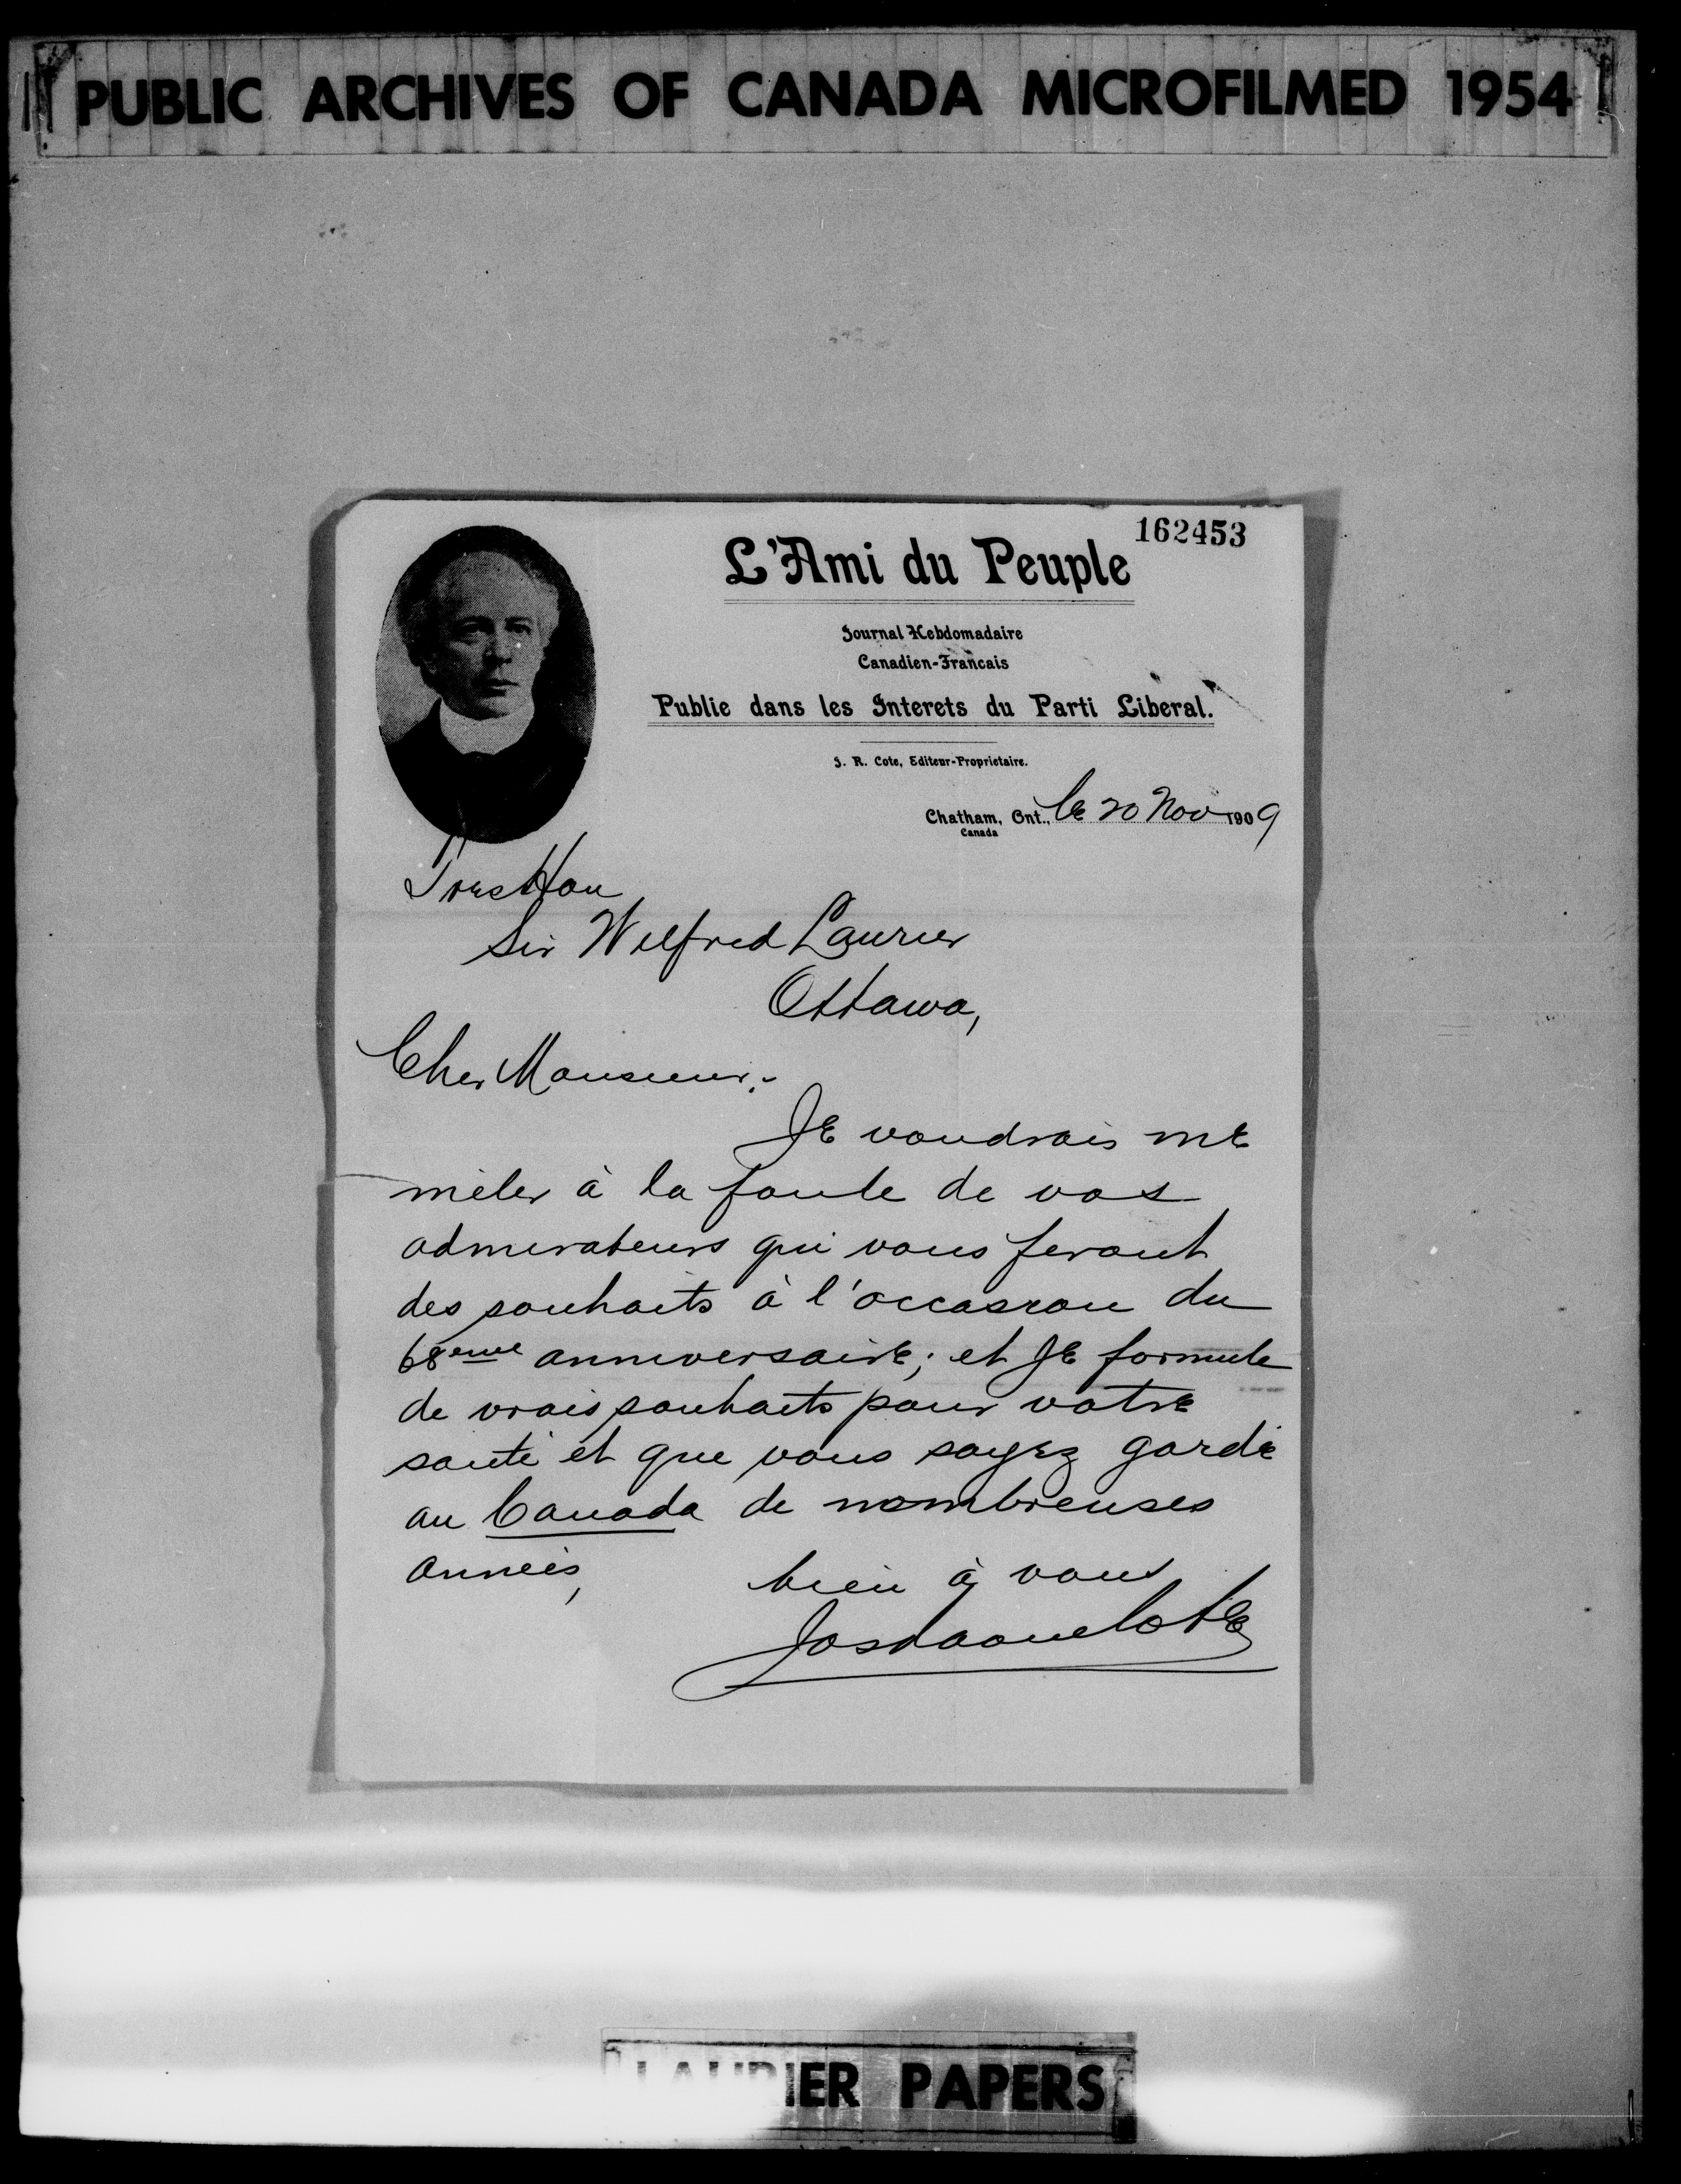 PUBLIC ARCHIVES OF CANADA MICROFILMED 1954
162453
L'Ami du Peuple
Journal Hebdomadaire
Canadien-Francais
Publie dans les Interets du Parti Liberal.
J. R. Cote, Editeur-Proprietaire.
Chatham, Ont., le 20 Nov 1909
Canada
Tres Hon
Sir Wilfred Laurier
Ottawa,
Cher Monsieur:-
Je voudrais me
mêler à la foule de vos
admirateurs qui vous feront
des souhaits à l'occasion du
68eme anniversaire; et je formule
de vrais souhaits pour votre
santé et que vous soyez gardé
au Canada de nombreuses
années,
bien à vous
Jos Raoul Cote
LAURIER PAPERS